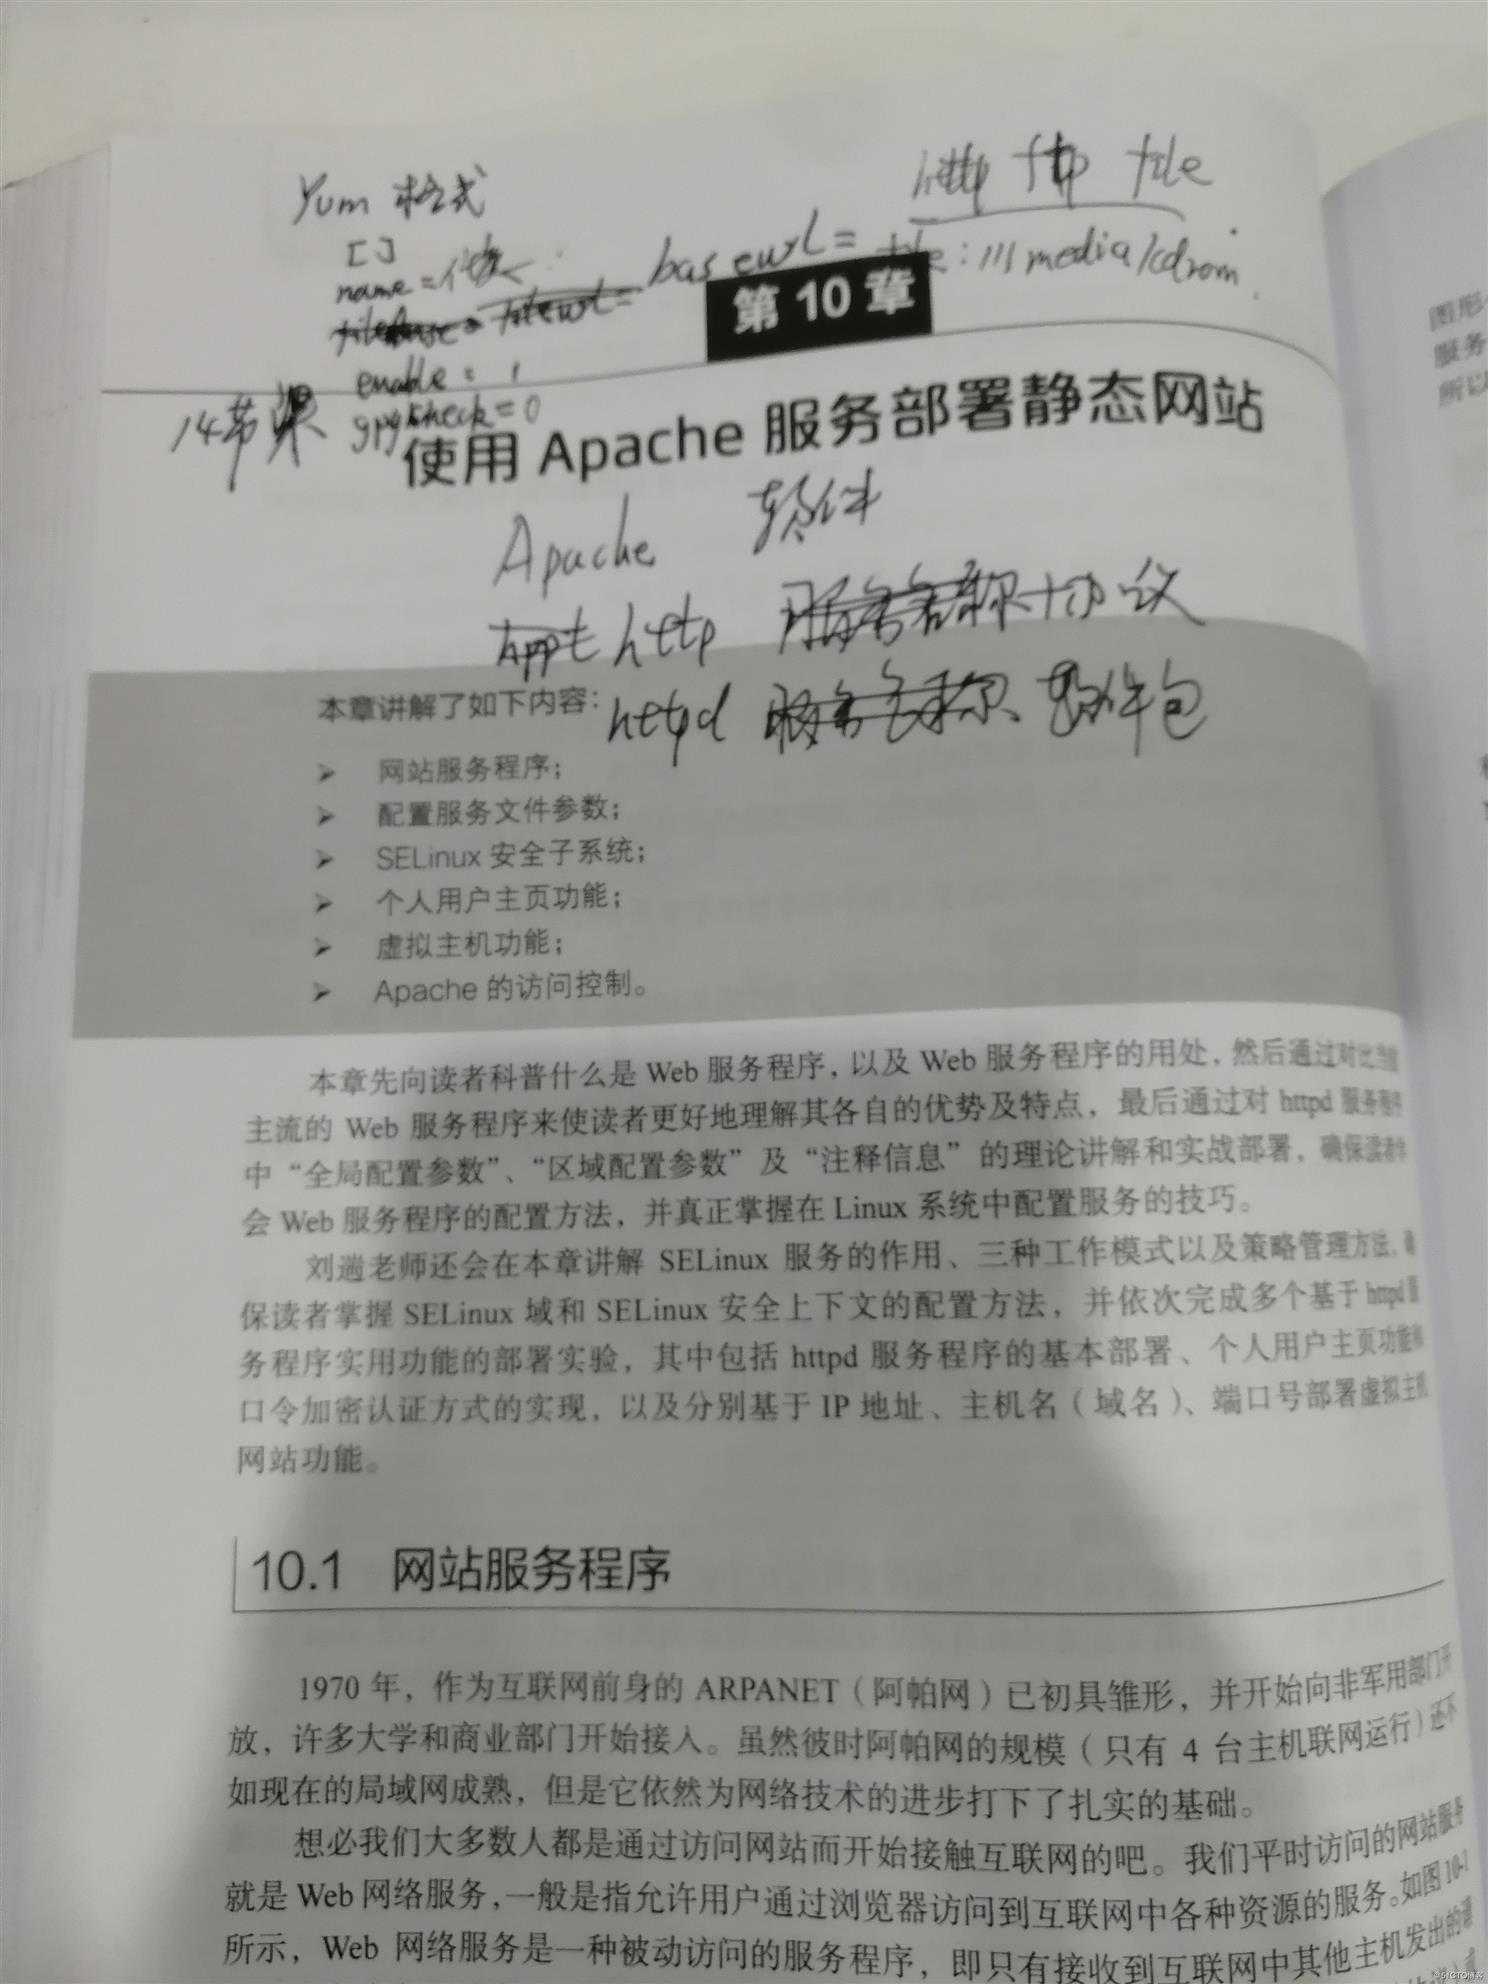 http ftp file
Yum 格式
[ ]
name =
baseurl = file:///media/cdrom
enable = 1
gpgcheck = 0
14节课
第 10 章
使用 Apache 服务部署静态网站
Apache 软件
http 协议
httpd 软件包
本章讲解了如下内容：
➢ 网站服务程序；
➢ 配置服务文件参数；
➢ SELinux 安全子系统；
➢ 个人用户主页功能；
➢ 虚拟主机功能；
➢ Apache 的访问控制。
本章先向读者科普什么是 Web 服务程序，以及 Web 服务程序的用处，然后通过对比当前
主流的 Web 服务程序来使读者更好地理解其各自的优势及特点，最后通过对 httpd 服务程序
中“全局配置参数”、“区域配置参数”及“注释信息”的理论讲解和实战部署，确保读者学
会 Web 服务程序的配置方法，并真正掌握在 Linux 系统中配置服务的技巧。
刘遄老师还会在本章讲解 SELinux 服务的作用、三种工作模式以及策略管理方法，确
保读者掌握 SELinux 域和 SELinux 安全上下文的配置方法，并依次完成多个基于 httpd 服
务程序实用功能的部署实验，其中包括 httpd 服务程序的基本部署、个人用户主页功能和
口令加密认证方式的实现，以及分别基于 IP 地址、主机名（域名）、端口号部署虚拟主机
网站功能。
10.1 网站服务程序
1970 年，作为互联网前身的 ARPANET（阿帕网）已初具雏形，并开始向非军用部门开
放，许多大学和商业部门开始接入。虽然彼时阿帕网的规模（只有 4 台主机联网运行）还不
如现在的局域网成熟，但是它依然为网络技术的进步打下了扎实的基础。
想必我们大多数人都是通过访问网站而开始接触互联网的吧。我们平时访问的网站服务
就是 Web 网络服务，一般是指允许用户通过浏览器访问到互联网中各种资源的服务。如图 10-1
所示，Web 网络服务是一种被动访问的服务程序，即只有接收到互联网中其他主机发出的请
图形
服务
所以
@51CTO博客